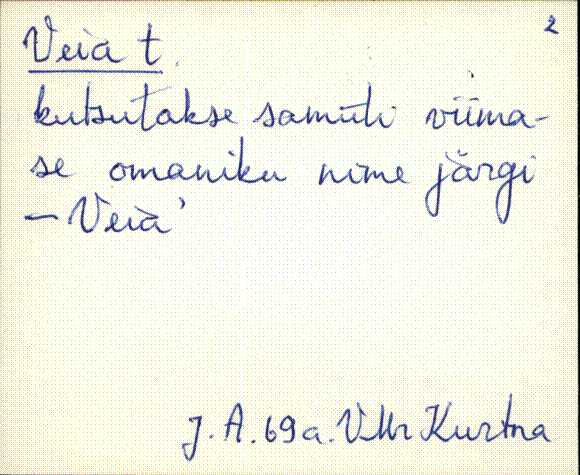 2
Veia t.
kutsutakse samuti viima-
se omaniku nime järgi
– Veia'
J. A. 69 a. VMr Kurtna